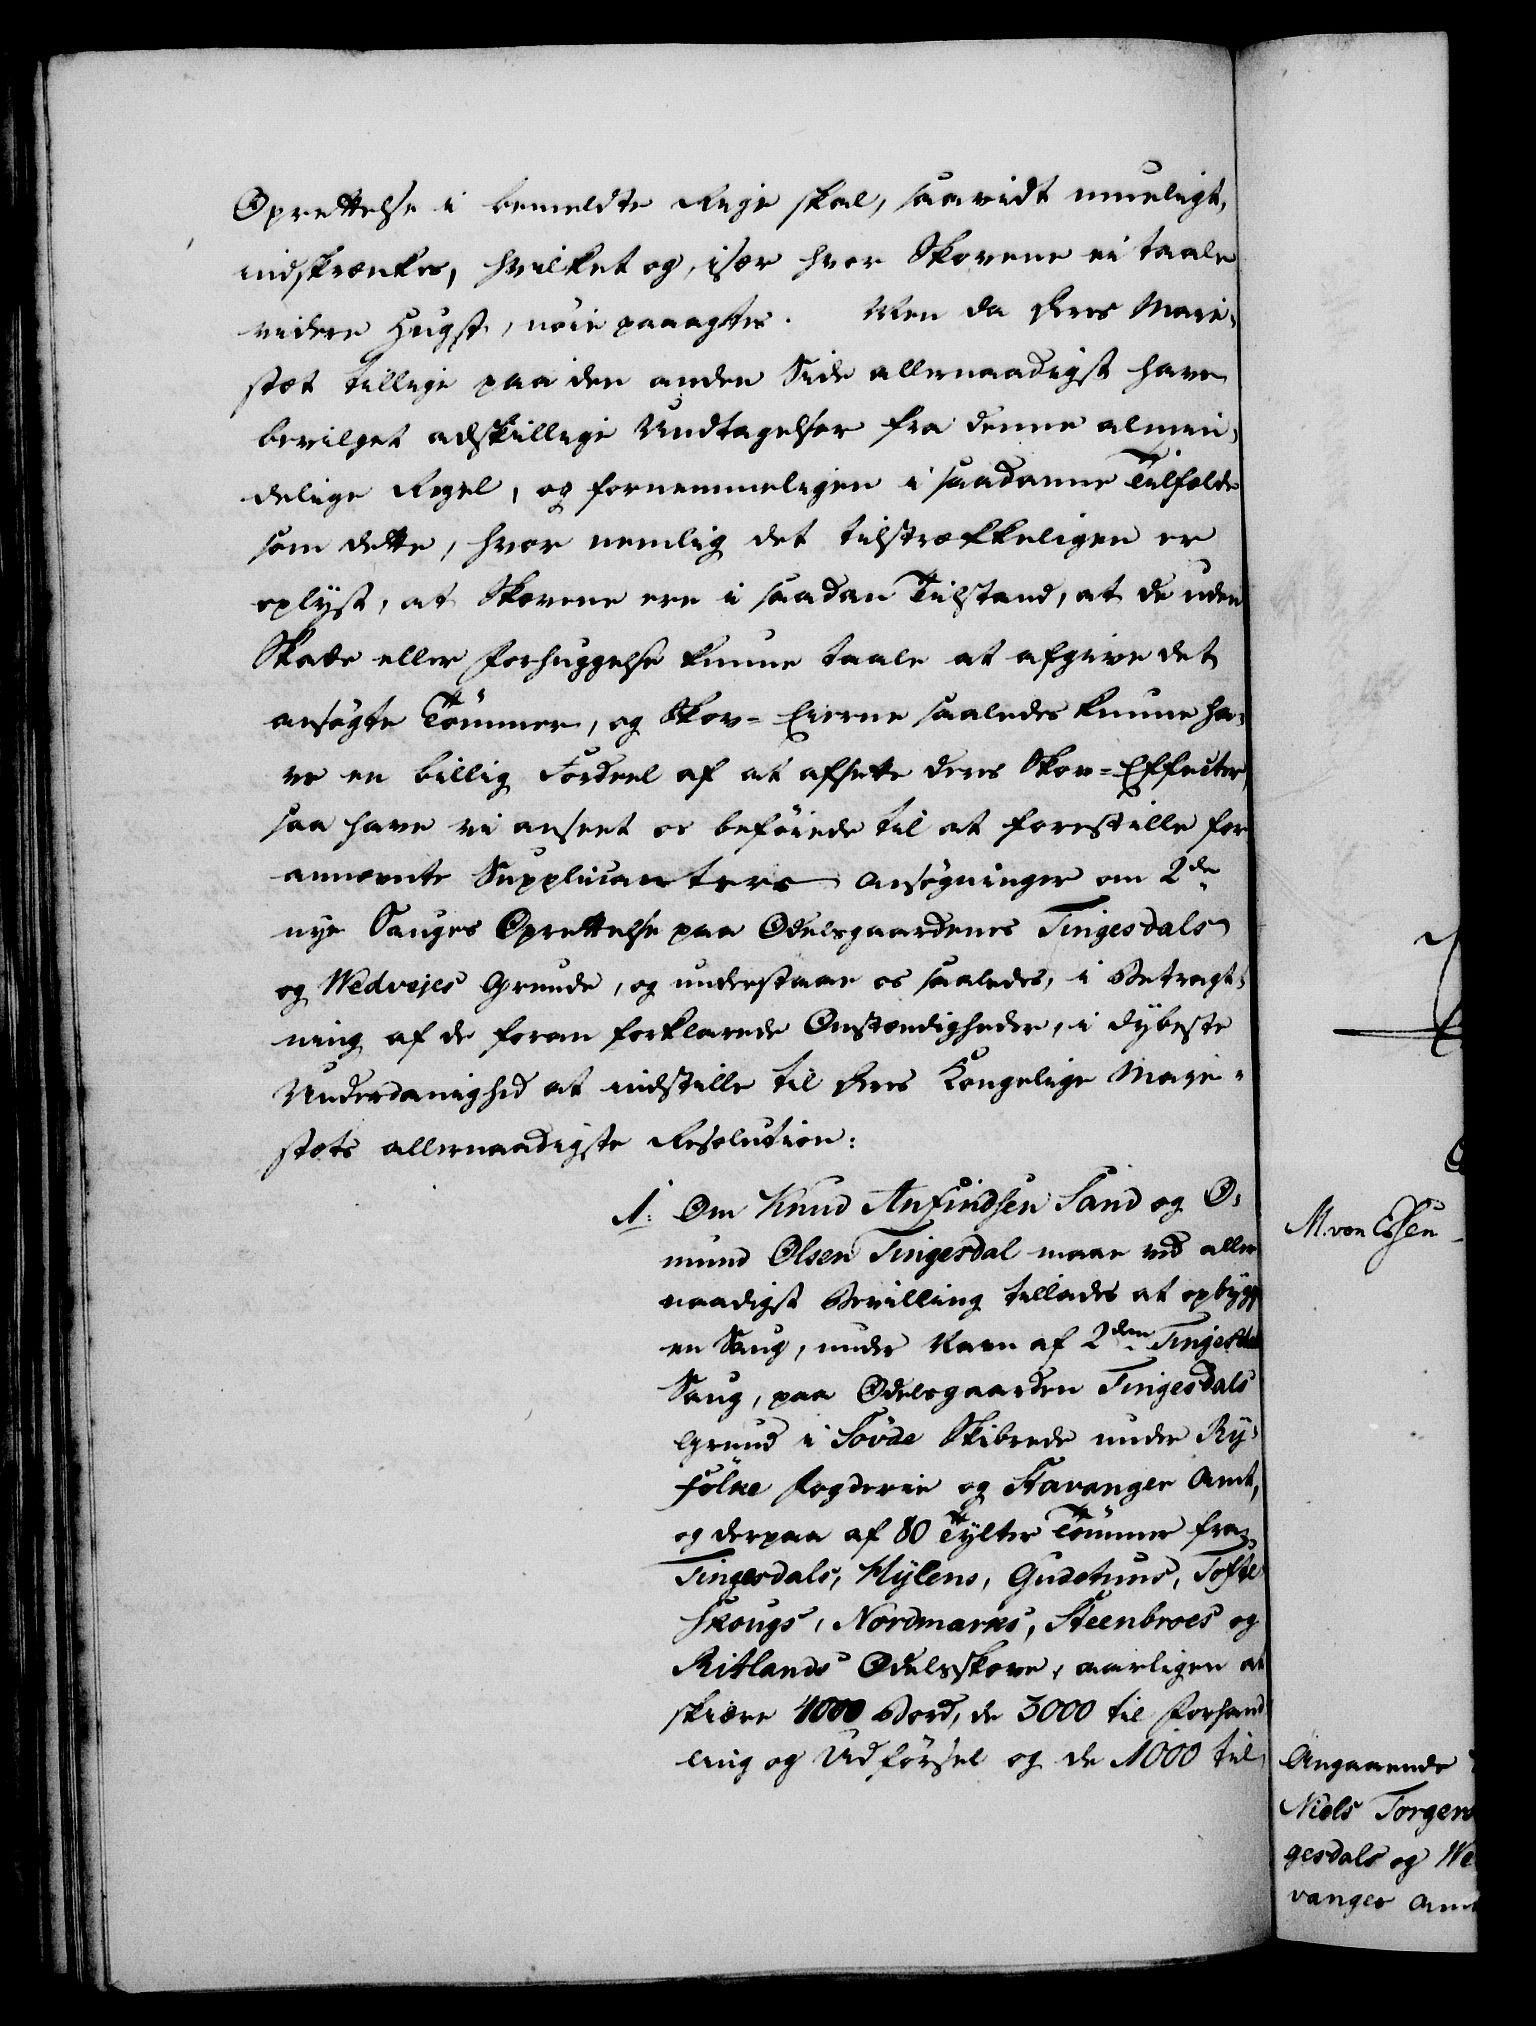 Oprettelse i bemeldte Rige skal, saavidt mueligt,
indskrænkes, hvilket og, især hvor Skovene ei taale
videre Hugst, nöie paaagtes. Men da Deres Maje-
stæt tillige paa den anden Side allernaadigst have
bevilget adskillige Undtagelser fra denne almin-
delige Regel, og fornemmeligen i saadanne Tilfælde
som dette, hvor nemlig det tilstrækkeligen er
oplyst, at Skovene ere i saadan Tilstand, at de uden
Skade eller Forhuggelse kunne taale at afgive det
ansögte Tömmer, og Skov-Eierne saaledes kunne ha-
ve en billig Fordeel af at afsætte deres Skov-Effecter,
saa have vi anseet os beföiede til at forestille for
annævnte Supplicanters Ansögninger om 2de
nye Sauges Oprettelse paa Odelsgaardenes Tingesdals
og Wedvejes Grunde, og understaae os saaledes, i Betragt-
ning af de foran forklarede Omstændigheder, i dybeste
Underdanighed at indstille til Deres Kongelige Maje-
stæts allernaadigste Resolution:
1. Om Knud Anfindsen Sand og O-
mund Olsen Tingesdal maae ved aller
naadigst Bevilling tillades at opbygge
en Saug, under Navn af 2den Tingesdals
Saug, paa Odelsgaarden Tingesdals
Grund i Søvde Skibrede under Ry-
fölke Fogderie og Stavanger Amt,
og derpaa af 80 Tylter Tömmer fra
Tingesdals, Hylens, Gudetuns, Tofte
skougs, Nordmarks, Steenbroes og
Ritlands Odelsskove, aarligen at
skiære 4000 Bord, de 3000 til Forhand
ling og Udförsel og de 1000 til
M. von Essen
Angaaende
Niels Torgers
gesdals og We
vanger Amt